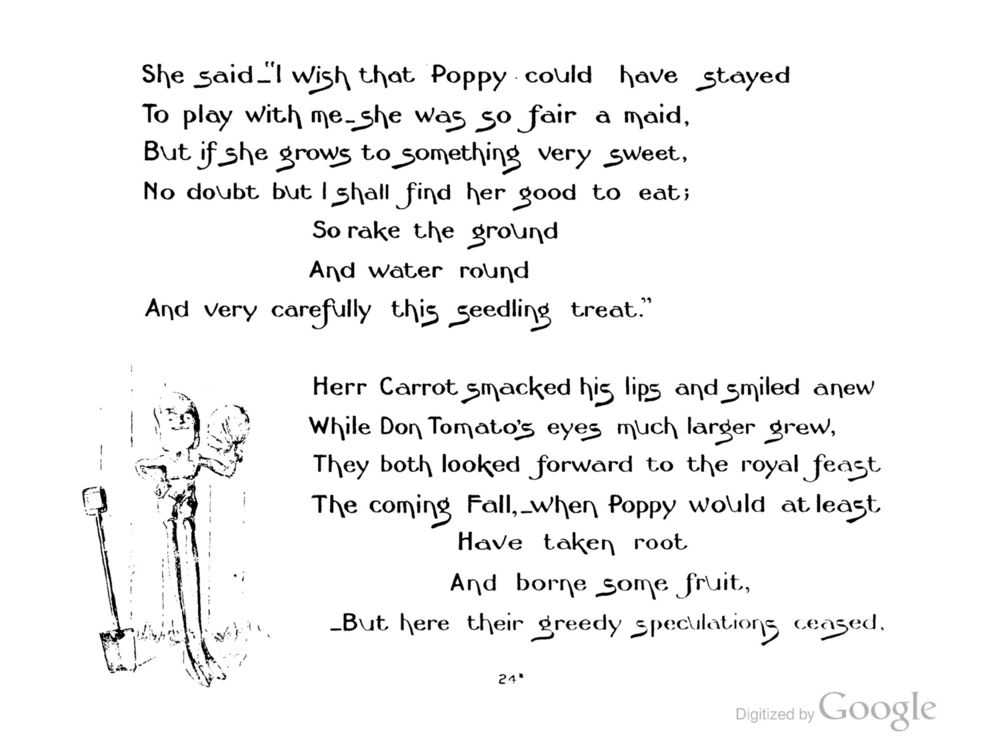 She said—"I wish that Poppy could have stayed
To play with me—she was so fair a maid,
But if she grows to something very sweet,
No doubt but I shall find her good to eat;
So rake the ground
And water round
And very carefully this seedling treat."
Herr Carrot smacked his lips and smiled anew
While Don Tomato's eyes much larger grew,
They both looked forward to the royal feast
The coming Fall,—when Poppy would at least
Have taken root
And borne some fruit,
—But here their greedy speculations ceased.
24*
Digitized by Google